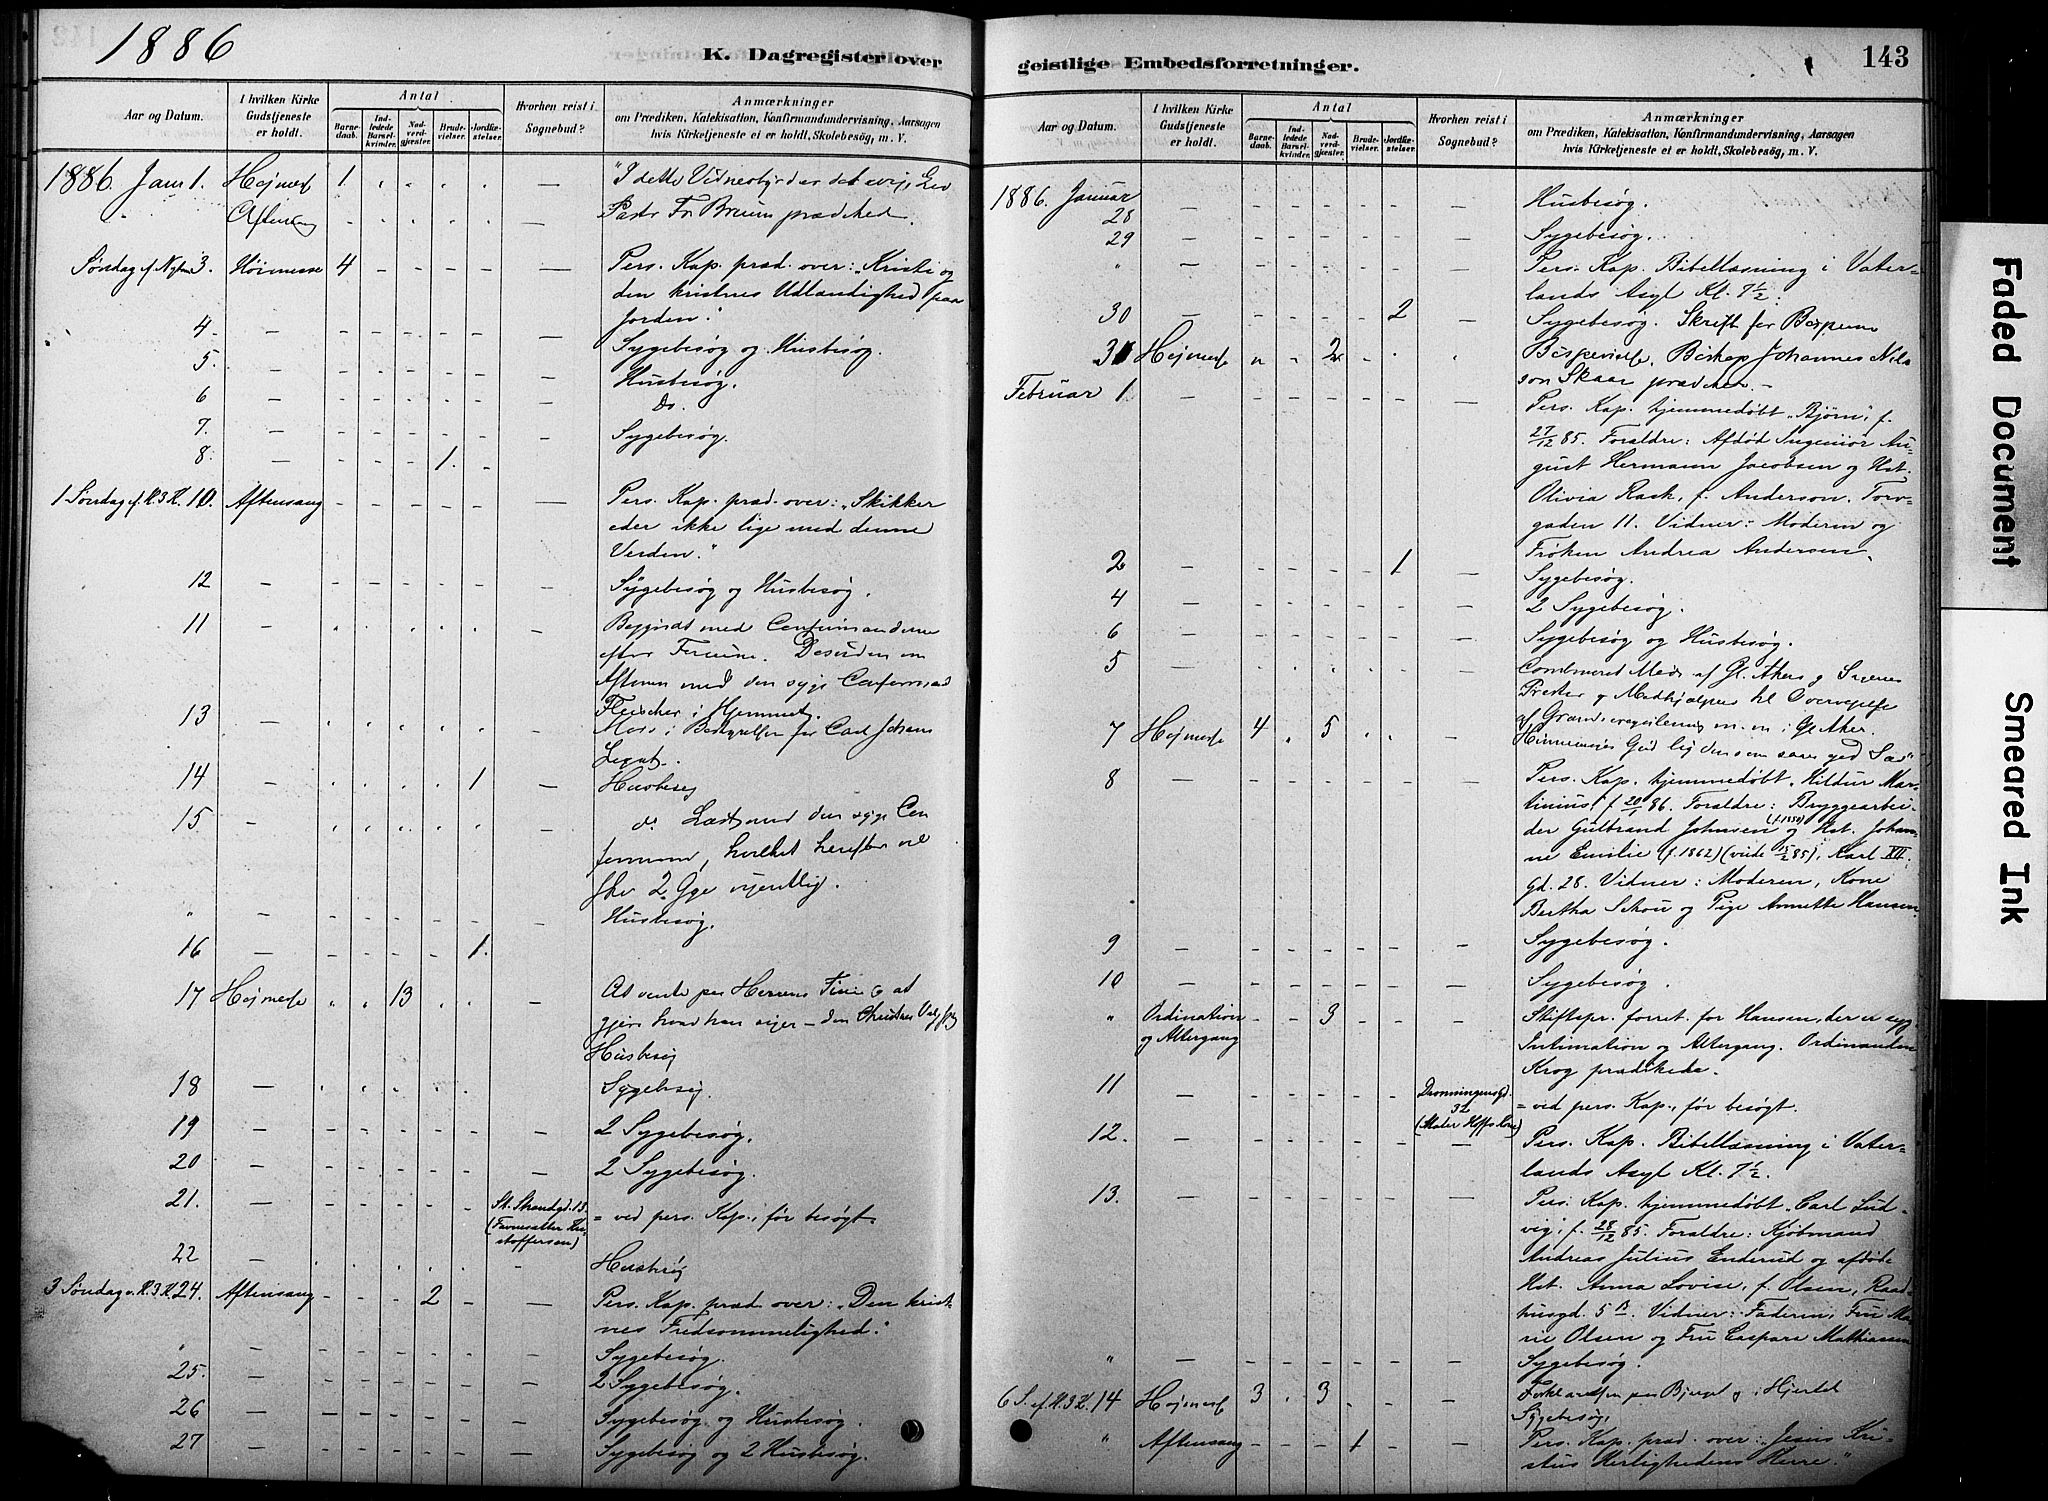 1886
K. Dagregister over
Aar og Datum.
I hvilken Kirke
Gudstjeneste
er holdt.
Antal
Barne-
daab.
Ind-
ledede
Barsel-
kvinder.
Nad-
verd-
gjæster.
Brude-
vielser.
Jordkа-
stelser.
Hvorhen reist i
Sognebud?
Anmærkninger
om Prædiken, Katekisation, Konfirmandundervisning, Aarsagen
hvis Kirketjeneste ei er holdt, Skolebesög, m. V.
1886. Jan 1. Højmesse 1 "I dette Vidnesbyrd er det evige Liv
Aftensang Pastor Fr. Bruun prædiked.
Søndag f. Nytaar 3. Höimesse 4 Pers. Kap. præd. over: Kristi og
den kristnes Udlændighed paa
Jorden."
4. Sygebesøg og Husbesøg.
5. Husbesøg.
6 Do.
7. Sygebesøg.
8. 1.
1 Søndag e. H. 3 K. 10. Aftensang Pers. Kap. præd. over: "Skikker
eder ikke lige med denne
Verden."
12 Sygebesøg og Husbesøg.
11 Begyndt med Confirmanderne
efter Ferierne. Desuden om
Aftenen med den syge Confirmand
Fleischer i Hjemmet.
13 Møde i Bestyrelsen for Carl Johans
Legat.
14 1 Husbesøg
15. do. Læst med den syge Con
firmand, hvilket herefter vil
ske 2 Gge ugentlig.
" Husbesøg.
16 1.
17 Højmesse 13 At vente paa Herrens Time og at
gjøre hvad han siger – den Christnes Valgsprog
Husbesøg
18 Sygebesøg.
19 2 Sygebesøg.
20 2 Sygebesøg.
21. St. Strandgd. 15. = ved pers. Kap., før besøgt.
(Favnesætter Kri-
stoffersen)
22 Husbesøg
3 Søndag e. H. 3 K. 24. Aftensang 2 Pers. Kap. præd. over: "Den krist-
nes Fredsommelighed."
" Sygebesøg.
25. 2 Sygebesøg.
26 Sygebesøg og Husbesøg.
27 Sygebesøg og 2 Husbesøg.
geistlige Embedsforretninger.
143
Aar og Datum.
I hvilken Kirke
Gudstjeneste
er holdt.
Antal
Barne-
daab.
Ind-
ledede
Barsel-
kvinder.
Nad-
verd-
gjæster.
Brude-
vielser.
Jordkа-
stelser.
Hvorhen reist i
Sognebud?
Anmærkninger
om Prædiken, Katekisation, Konfirmandundervisning, Aarsagen
hvis Kirketjeneste et er holdt, Skolebesög, m. V.
1886. Januar
28 Husbesøg.
29 Sygebesøg.
" Pers. Kap. Bibellæsning i Vater-
lands Asyl Kl. 7½.
30 2 Sygebesøg. Skrift for Bisperne
31 Højmesse 2 Bispevielse. Biskop Johannes Nils
son Skaar prædiked.
Februar 1 Pers. Kap. hjemmedøbt "Bjørn", f.
27/12 85. Forældre: Afdød Ingeniør Au-
gust Hermann Jacobsen og Hst.
Olivia Rask, f. Anderson. Torv-
gaden 11. Vidner: Moderen og
Frøken Andrea Andersen.
2 1 Sygebesøg.
4 2 Sygebesøg.
6 Sygebesøg og Husbesøg.
5 Combineret Møde af Gl. Akers og Sagenes
Præster og Medhjælpere til Overveielse
af Grændseregulering m. m. i Gl. Aker.
7 Højmesse 4 5
8 Pers. Kap. hjemmedøbt "Hildur Mar-
tinius", f. 20/1 86. Forældre: Bryggearbei-
der Gulbrand Johnsen (f. 1850) og Hst. Johan-
ne Emilie (f. 1862) (viede 15/2 85), Karl XII
gd. 28. Vidner: Moderen, Kone
Bertha Schou og Pige Annette Hansen.
9 Sygebesøg.
10 Sygebesøg.
" Ordination 3 Stiftspr. forret. for Hansen, der er syg.
og Altergang Intimation og Altergang. Ordinanden
Krog prædikede.
11 Dronningensgd. = ved pers. Kap., før besøgt.
32
12. Pers. Kap. Bibellæsning i Vater-
lands Asyl Kl. 7½.
13. Pers. Kap. hjemmedøbt "Carl Lud-
vig", f. 28/12 85. Forældre: Kjøbmand
Andreas Julius Enderud og afdøde
Hst. Anna Lovise, f. Olsen, Raad-
husgd. 5 B. Vidner: Faderen, Fru Ma-
rie Olsen og Fru Caspara Mathiassen
" Sygebesøg.
6 S. ef. H. 3 K. 14 Højmesse 3 3 Forklarelsen paa Bjerget og i Hjertet
Sygebesøg.
" Aftensang 1 Pers. Kap. præd. over: "Jesus Kri-
stus Herlighedens Herre."
Faded Document
Smeared Ink